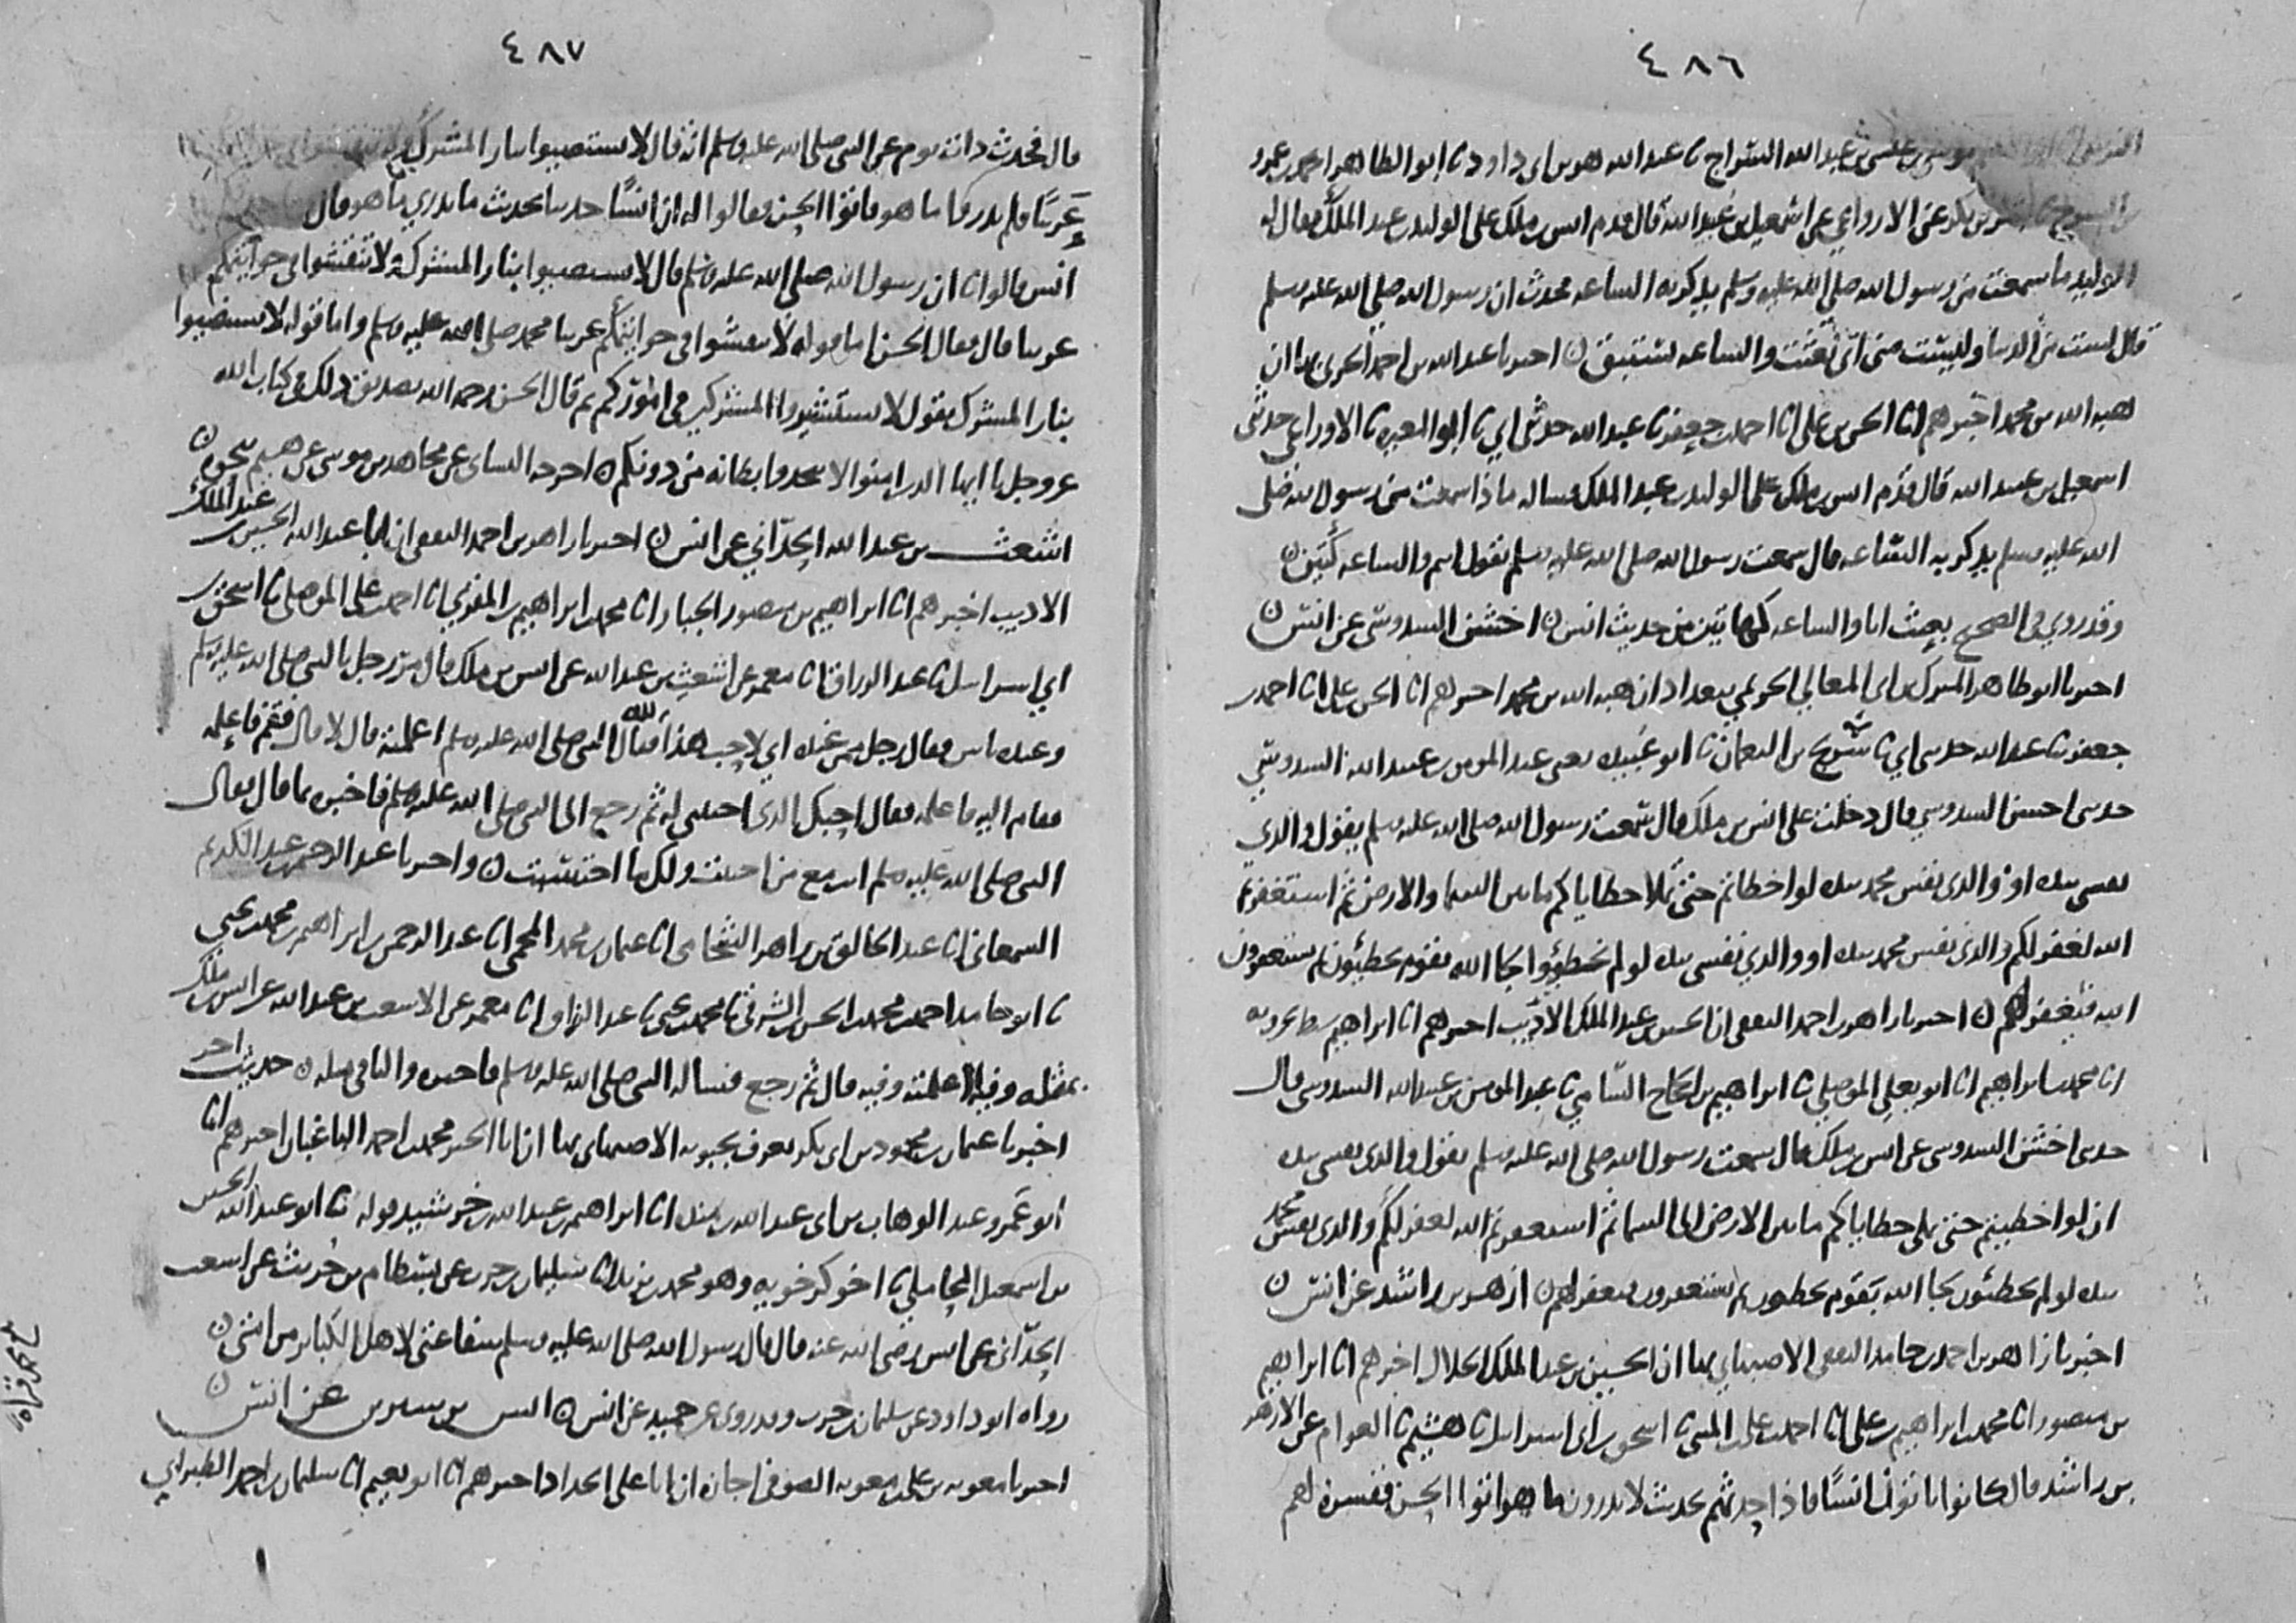 ٤٨٦
موسى بن عيسى بن عبد الله السراج نا عبد الله هو بن ابي داود نا ابو الطاهر احمد بن عمرو
بن السرح نا بشر بن بكر عن الاوزاعي عن اسمعيل بن عبيد الله قال قدم انس بن ملك على الوليد بن عبد الملك فقال له
الوليد ما سمعت من رسول الله صلى الله عليه وسلم يذكر به الساعه فحدث ان رسول الله صلى الله عليه وسلم
قال لست من الدنيا وليست مني اني بعثت والساعه تستبق ن اخبرنا عبد الله بن احمد الحربي بها ان
هبه الله بن محمد اخبرهم انا الحسن بن علي انا احمد بن جعفر نا عبد الله حدثني ابي نا ابو المغيره نا الاوزاعي حدثني
اسمعيل بن عبيد الله قال قدم انس بن ملك على الوليد بن عبد الملك فساله ماذا سمعت من رسول الله صلى
الله عليه وسلم يذكر به الساعه قال سمعت رسول الله صلى الله عليه وسلم يقول انتم والساعه كتين ن
وقد روي في الصحيح بعثت انا والساعه كهاتين من حديث انس ن اخشن السدوسي عن انس ن
اخبرنا ابو طاهر المبرك بن ابي المعالي الحريمي ببغداد ان هبه الله بن محمد اخبرهم انا الحسن بن علي انا احمد بن
جعفر نا عبد الله حدثني ابي نا سريج بن النعمان نا ابو عبيده يعني عبد المومن بن عبيد الله السدوسي
حدثني اخشن السدوسي قال دخلت على انس بن ملك قال سمعت رسول الله صلى الله عليه وسلم يقول والذي
نفسي بيده او والذي نفس محمد بيده لو اخطاتم حتى تملا خطاياكم ما بين السما والارض ثم استغفرتم
الله لغفر لكم والذي نفس محمد بيده او والذي نفسي بيده لو لم تخطئوا لجا الله بقوم يخطئون ثم يستغفرون
الله فيغفر لهم ن اخبرنا زاهر بن احمد الثقفي ان الحسين بن عبد الملك الاديب اخبرهم انا ابراهيم سبط بحرويه
انا محمد بن ابراهيم انا ابو يعلى الموصلي نا ابراهيم بن الحجاج السامي نا عبد المومن بن عبيد الله السدوسي قال
حدثني اخشن السدوسي عن انس بن ملك قال سمعت رسول الله صلى الله عليه وسلم يقول والذي نفسي بيده
ان لو اخطيتم حتى تملى خطاياكم ما بين الارض الى السما ثم استغفرتم الله لغفر لكم والذي نفس محمد
بيده لو لم تخطئون لجا الله بقوم يخطون ثم يستغفرون فيغفر لهم ن ازهر بن راشد عن انس ن
اخبرنا زاهر بن احمد بن حامد الثقفي الاصبهاني بها ان الحسين بن عبد الملك الخلال اخبرهم انا ابراهيم
بن منصور انا محمد بن ابراهيم بن علي انا احمد بن علي بن المثنى نا اسحق بن ابي اسرايل نا هشيم نا العوام عن الازهر
بن راشد قال كانوا ياتون انسا فاذا حدثهم بحديث لا يدرون ما هو اتوا الحسن ففسره لهم
٤٨٧
قال فحدث ذات يوم عن النبي صلى الله عليه وسلم انه قال لا تستضيوا بنار المشرك ولا تنقشوا في خواتيمكم
عربيا فلم يدروا ما هو فاتوا الحسن فقالوا له ان انسا حدثنا بحديث ما ندري ما هو قال
انس قالوا نا ان رسول الله صلى الله عليه وسلم قال لا تستضيوا بنار المشركة ولا تنقشوا في خواتيمكم
عربيا قال فقال الحسن اما قوله لا تنقشوا في خواتيمكم عربيا محمد صلى الله عليه وسلم واما قوله لا تستضيوا
بنار المشرك يقول لا تستشيروا المشركين في اموركم ثم قال الحسن رحمه الله تصديق ذلك في كتاب الله
عز وجل يا ايها الذين امنوا لا تتخذوا بطانه من دونكم ن اخرجه النساي عن مجاهد بن موسى عن هشيم بنحوه ن
اشعث بن عبد الله الحداني عن انس ن اخبرنا زاهر بن احمد الثقفي ان ابا عبد الله الحسين بن عبد الملك
الاديب اخبرهم انا ابراهيم بن منصور الخباز انا محمد بن ابراهيم بن المقرئ انا احمد بن علي الموصلي نا اسحق بن
ابي اسرايل نا عبد الرزاق انا معمر عن اشعث بن عبد الله عن انس بن ملك قال مر رجل بالنبي صلى الله عليه وسلم
وعنده ناس فقال رجل ممن عنده اني لاحب هذا لله فقال النبي صلى الله عليه وسلم اعلمته قال لا قال فقم فاعلمه
فقام اليه فاعلمه فقال احبك الذي احببتني له ثم رجع الى النبي صلى الله عليه وسلم فاخبره بما قال فقال
النبي صلى الله عليه وسلم انت مع من احببت ولك ما احتسبت ن واخبرنا عبد الرحيم بن عبد الكريم
السمعاني انا عبد الخالق بن زاهر الشحامي انا عثمان بن محمد المحمي انا عبد الرحمن بن ابراهيم بن محمد بن يحيى
نا ابو حامد احمد بن محمد بن الحسن الشرقي نا محمد بن يحيى نا عبد الرزاق انا معمر عن الاشعث بن عبد الله عن انس بن ملك
بمثله وفيه اعلمته وفيه قال ثم رجع فساله النبي صلى الله عليه وسلم فاخبره والباقي مثله ن حديث اخر
اخبرنا عثمان بن محمود بن ابي بكر يعرف بحبويه الاصبهاني بها ان ابا الخير محمد بن احمد الباغبان اخبرهم انا
ابو عمرو عبد الوهاب بن ابي عبد الله بن منده انا ابراهيم بن عبد الله بن خرشيد قوله نا ابو عبد الله الحسين
بن اسمعيل المحاملي نا اخو كرخويه وهو محمد بن يزيد نا سليمان بن حرب عن بسطام بن حريث عن اشعث
الحداني عن انس رضي الله عنه قال قال رسول الله صلى الله عليه وسلم شفاعتي لاهل الكبار من امتي ن
رواه ابو داود عن سليمان بن حرب وقد روي عن حميد عن انس ن انس بن سيرين عن انس ن
اخبرنا معويه بن علي بن معويه الصوفي اجازه ان ابا علي الحداد اخبرهم انا ابو نعيم انا سليمان بن احمد الطبراني